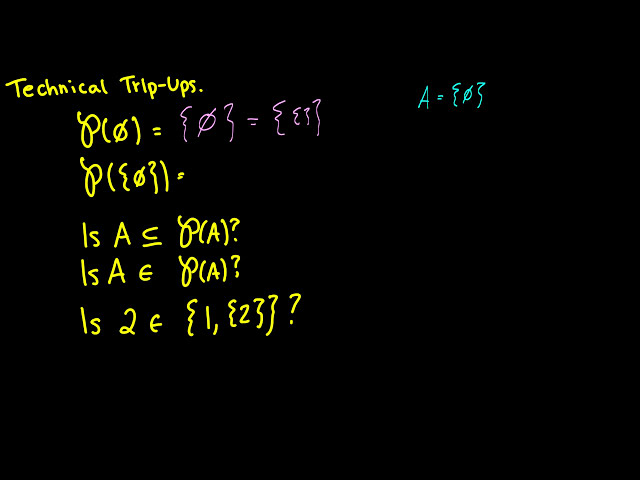 Technical Trip-Ups.
A = {∅}
℘(∅) = {∅} = {{}}
℘({∅}) =
Is A ⊆ ℘(A)?
Is A ∈ ℘(A)?
Is 2 ∈ {1, {2}}?